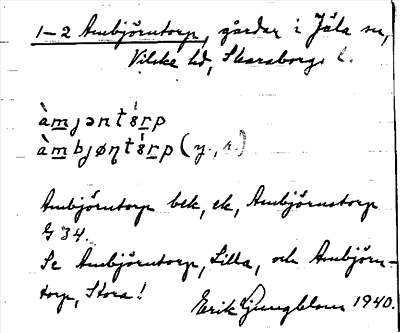 1-2 Ambjörntorp, gårdar i Jäla sn,
Vilske hd, Skaraborgs l.
àmjəntórp
àmbjøntórp (y., s.)
Ambjörntorp bek, ek, Ambjörnstorp
G 34.
Se Ambjörntorp, Lilla, och Ambjörn-
torp, Stora!
Erik Ljungblom 1940.